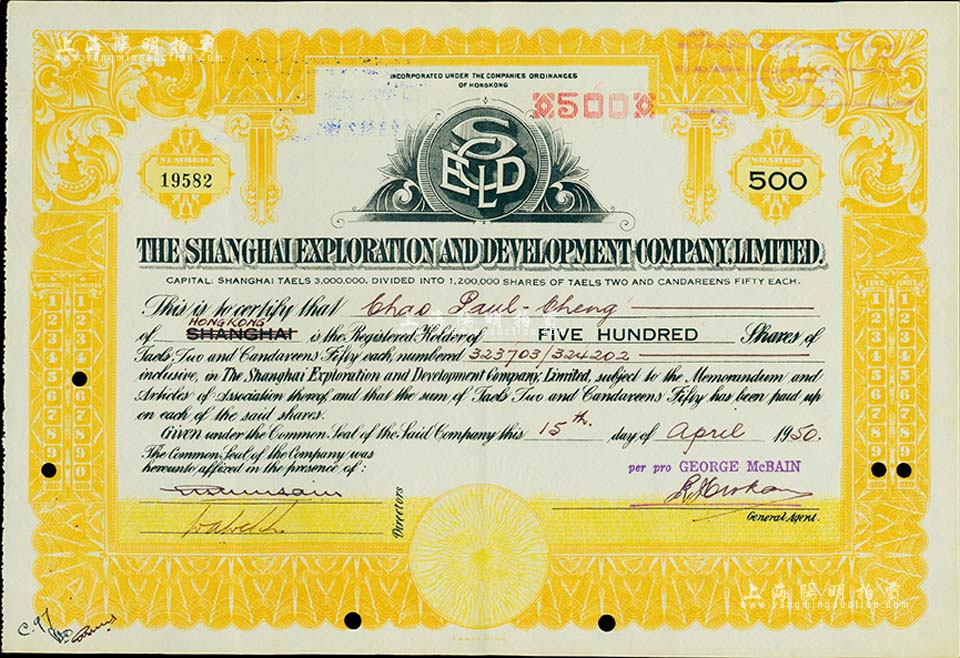 上海陽明拍賣
www.yangmingauction.com
INCORPORATED UNDER THE COMPANIES ORDINANCES
OF HONGKONG
500
SEDL
NUMBER
19582
SHARES
500
THE SHANGHAI EXPLORATION AND DEVELOPMENT COMPANY, LIMITED.
CAPITAL: SHANGHAI TAELS 3,000,000, DIVIDED INTO 1,200,000 SHARES OF TAELS TWO AND CANDAREENS FIFTY EACH.
This is to certify that Chao Paul-Cheng
HONGKONG
of SHANGHAI is the Registered Holder of FIVE HUNDRED Shares of
Taels Two and Candareens Fifty each, numbered 323703/324202
inclusive, in The Shanghai Exploration and Development Company, Limited, subject to the Memorandum and
Articles of Association thereof, and that the sum of Taels Two and Candareens Fifty has been paid up
on each of the said shares.
Given under the Common Seal of the Said Company this 15th. day of April 1950.
The Common Seal of the Company was
hereunto affixed in the presence of:
per pro GEORGE McBAIN
Directors
General Agent.
TENS
UNITS
1 2 3 4 5 6 7 8 9 0
上海陽明拍賣
上海陽明拍賣
www.yangmingauction.com